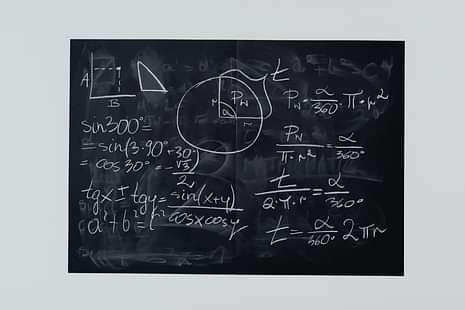 A
B
sin300°=
=sin(3·90°+30°)
=cos30°=-√3/2
tgx±tgy=sin(x+y)/cosxcosy
a²+b²=c²
t
P_N
r
α
r
P_N=α/360°·π·r²
P_N/π·r²=α/360°
t/2·π·r=α/360°
t=α/360°2πr